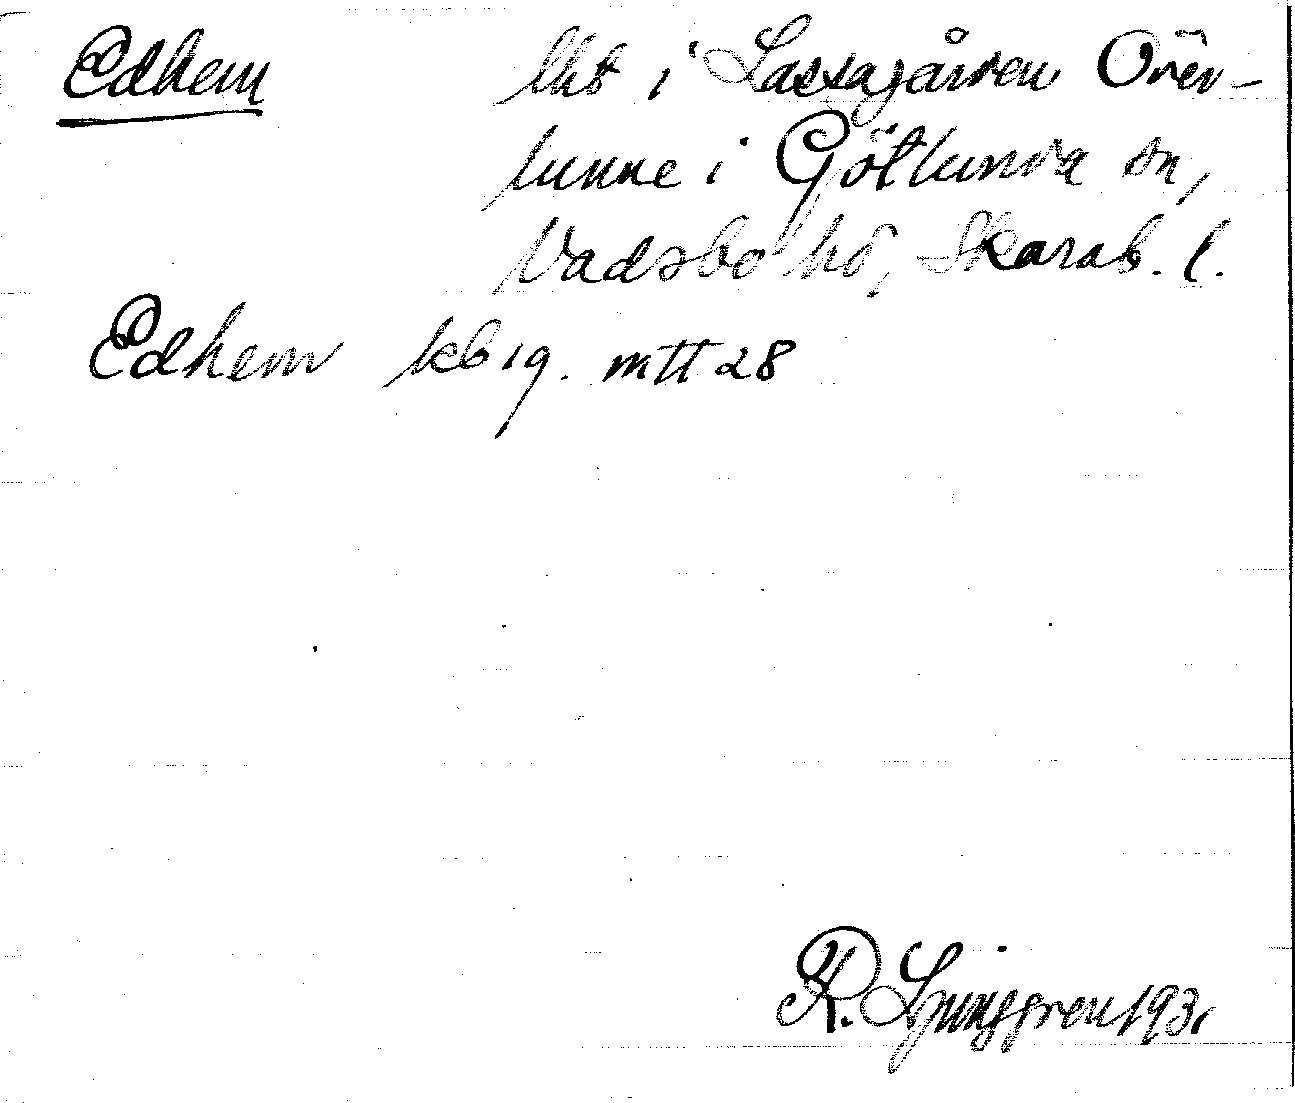 Edhem lht i Lassagården Över-
tunne i Götlunda sn,
Vadsbo hd, Skarab. l.
Edhem kb 19. mtt 28
R. Ljunggren 1931